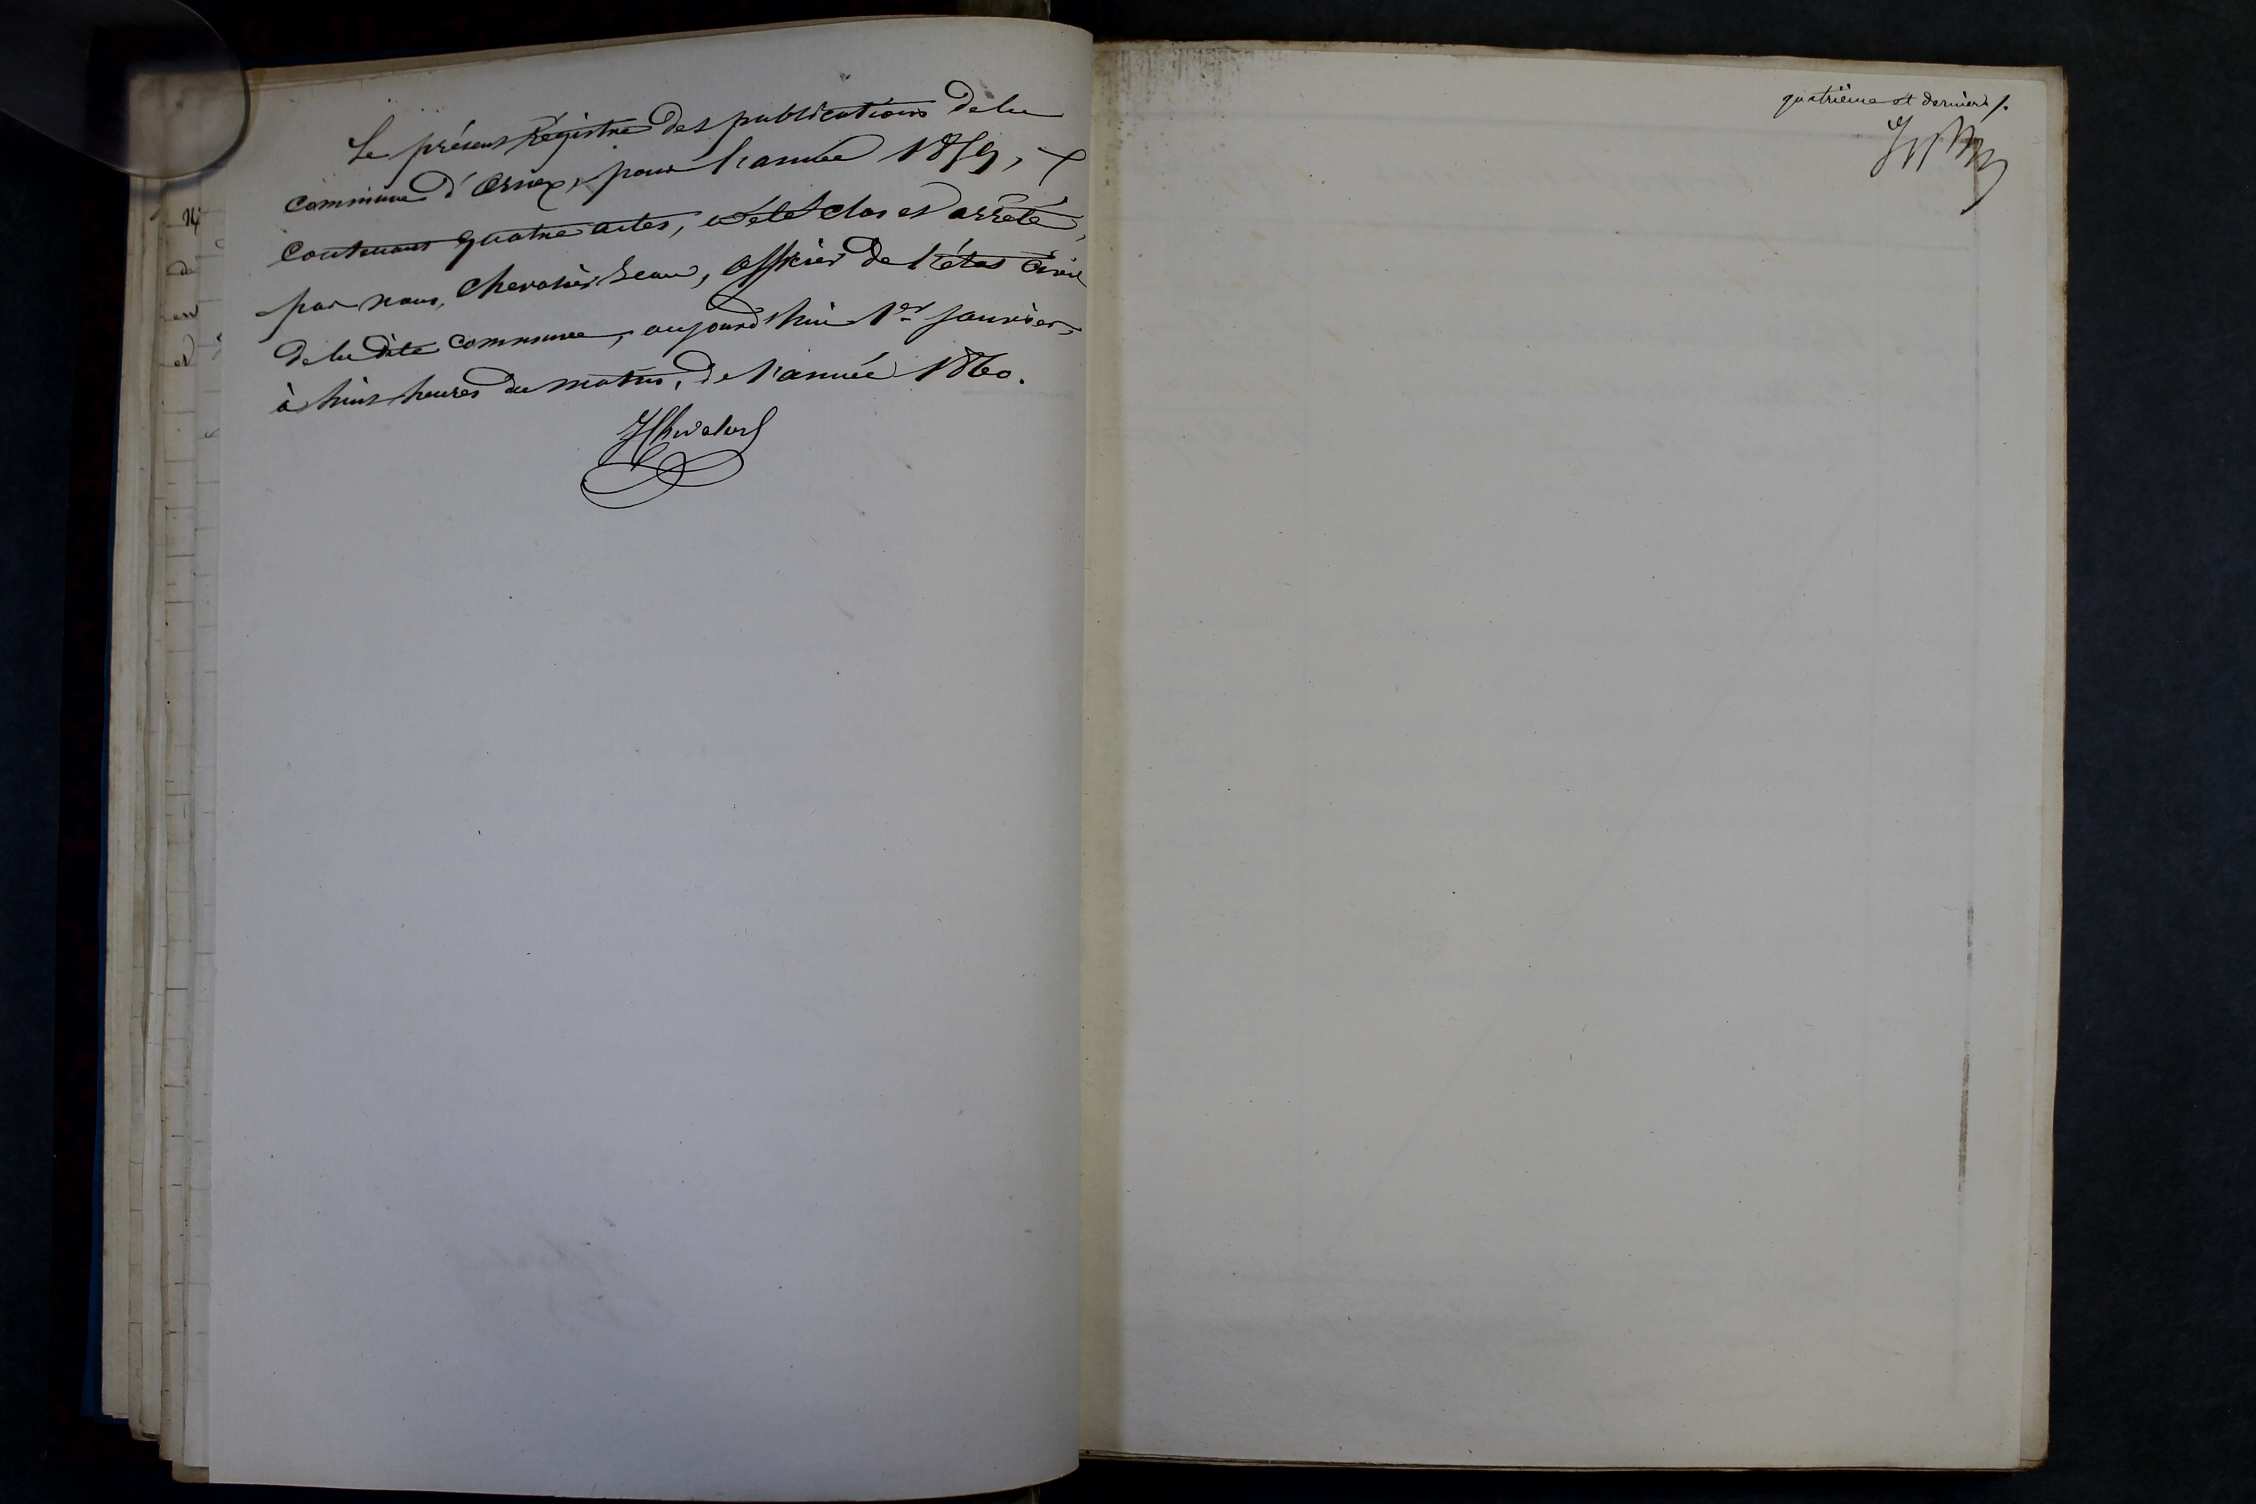 Le présent Régistre des publications de la
commune d'Ornex, pour l'année 1859,
contenant quatre actes, a été clos et arrêté,
par nous, Chevalier Jean, officier de l'état Civil
de la dite commune, aujourd'hui 1er Janvier,
à huit heures du matin, de l'année 1860.
JChevalier
quatrième et dernier f.